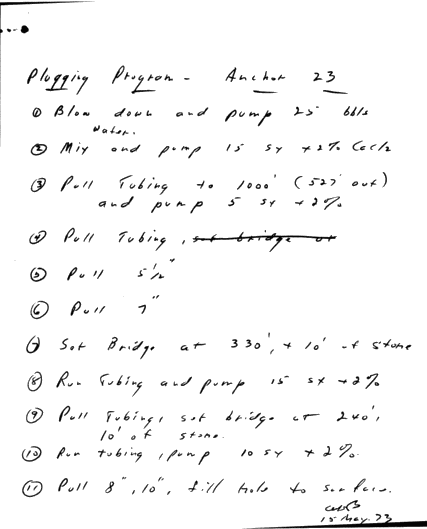 Plugging Program - Anchor 23
① Blow down and pump 25 bbls
water.
② Mix and pump 15 sx + 2% CaCl2
③ Pull Tubing to 1000' (527' out)
and pump 5 sx + 2%
④ Pull Tubing, set bridge at
⑤ Pull 5 1/2"
⑥ Pull 7"
⑦ Set Bridge at 330', + 10' of stone
⑧ Run Tubing and pump 15 sx + 2%
⑨ Pull Tubing, set bridge at 240',
10' of stone.
⑩ Run tubing, pump 10 sx + 2%.
⑪ Pull 8", 10", fill hole to surface.
15 May 73